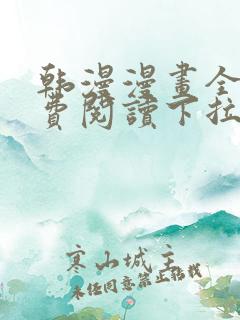 韩漫漫畫全
費閱讀下拉
寒山城主
未经同意禁止转载